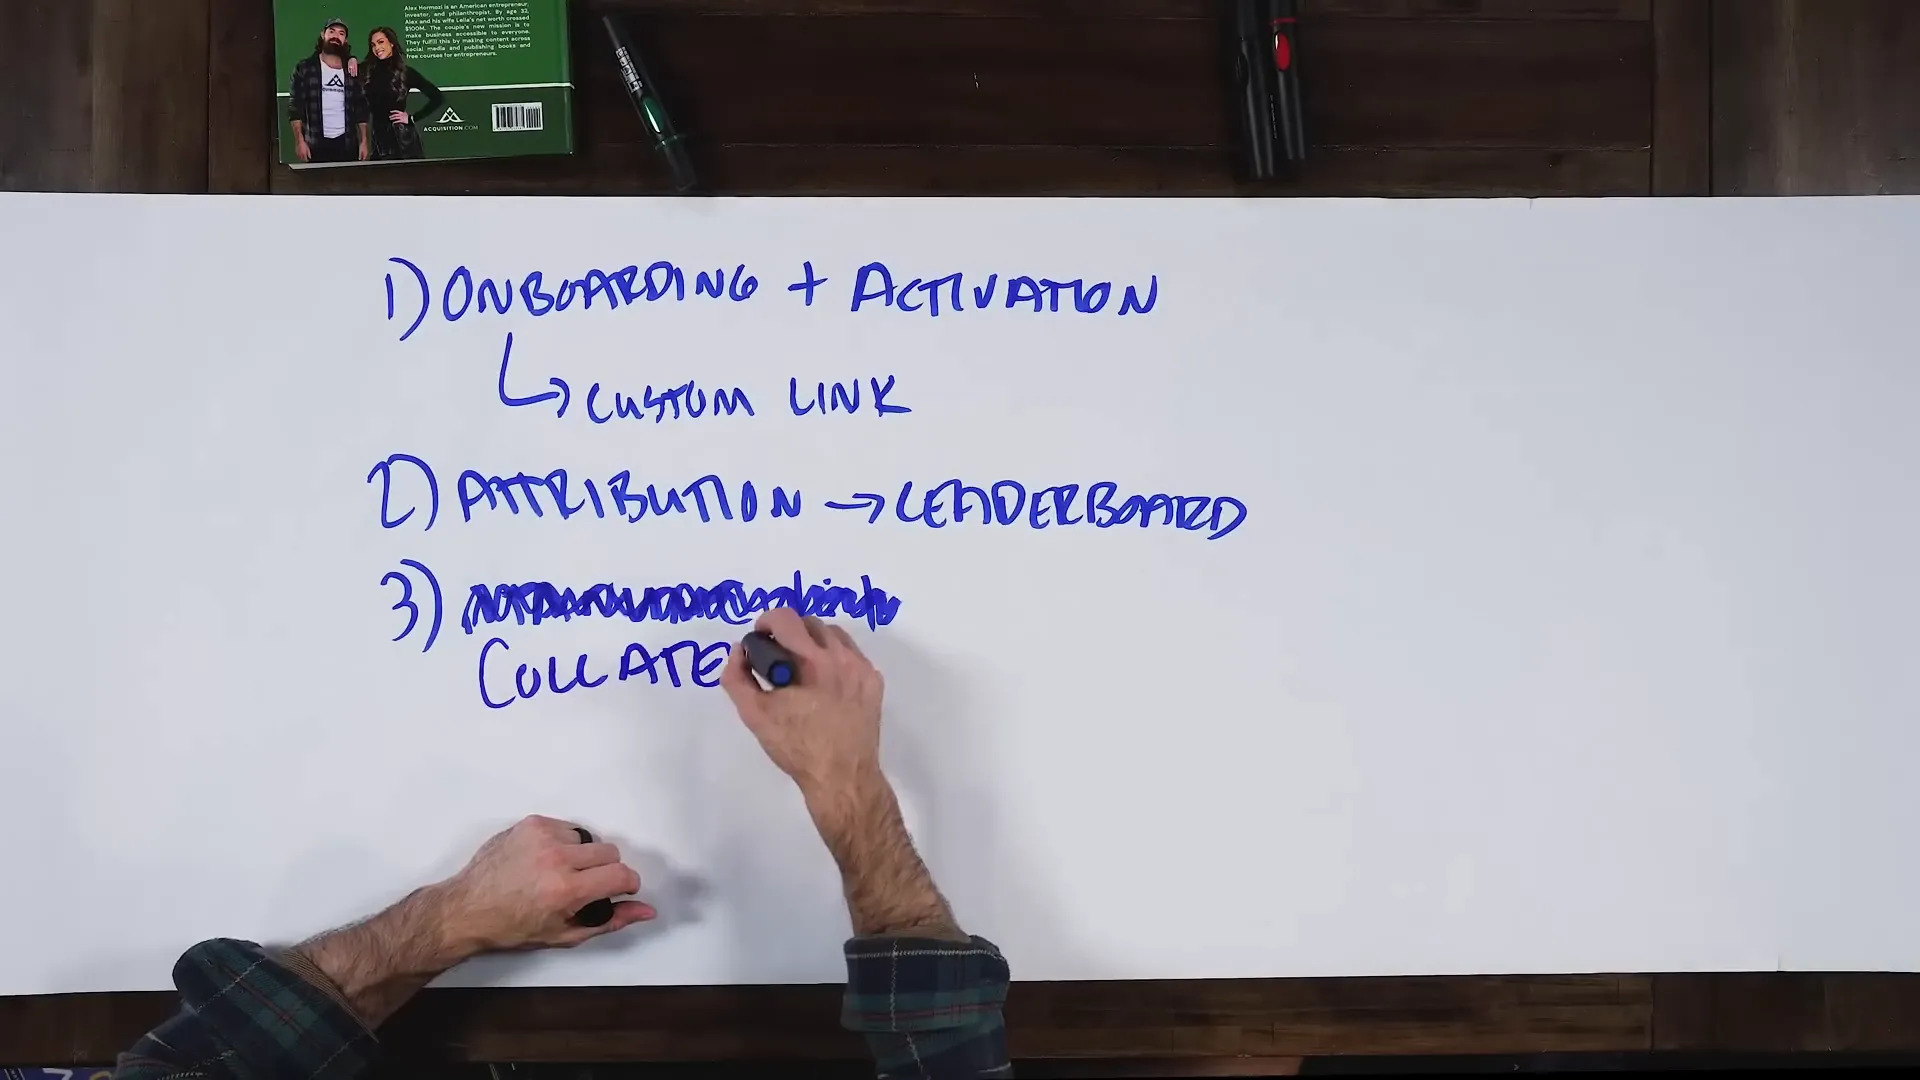 Alex Hormozi is an American entrepreneur,
investor, and philanthropist. By age 32,
Alex and his wife Leila's net worth crossed
$100M. The couple's new mission is to
make business accessible to everyone.
They fulfill this by making content across
social media and publishing books and
free courses for entrepreneurs.
ACQUISITION.COM
1) ONBOARDING + ACTIVATION
CUSTOM LINK
2) ATTRIBUTION → LEADERBOARD
3)
COLLATE